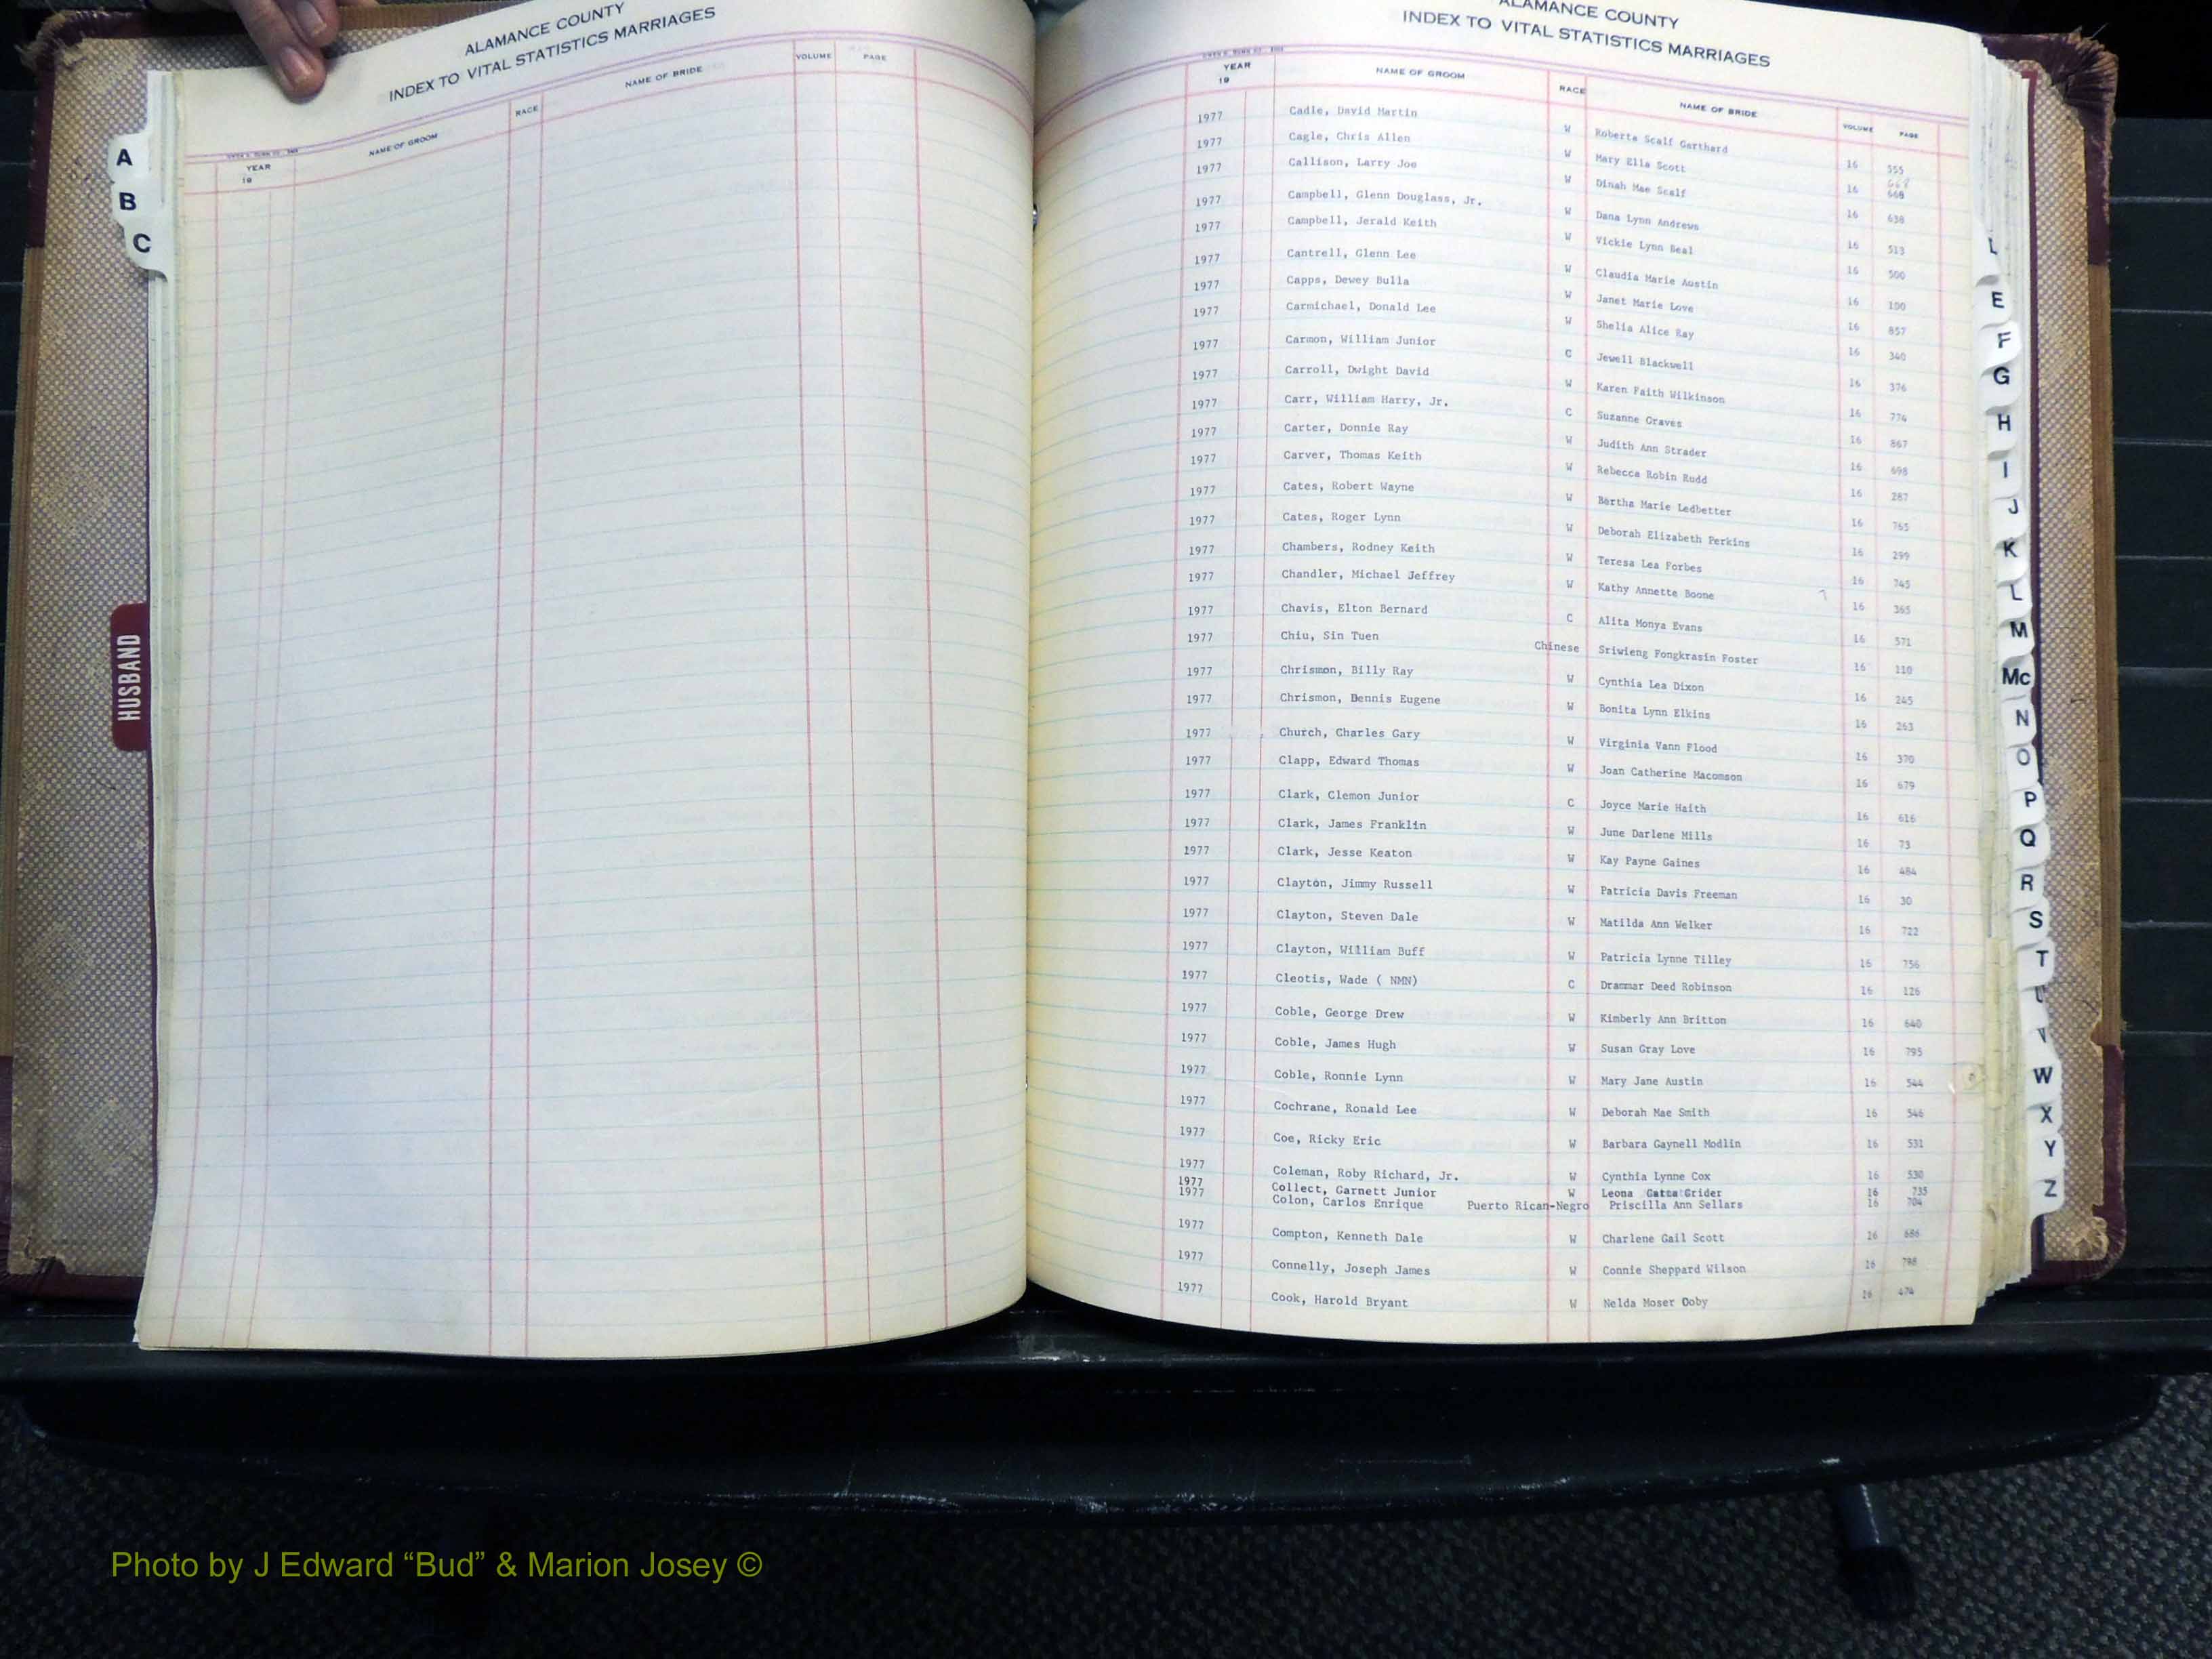 ALAMANCE COUNTY
INDEX TO VITAL STATISTICS MARRIAGES
YEAR 19 NAME OF GROOM RACE NAME OF BRIDE VOLUME PAGE
A
B
C
HUSBAND
ALAMANCE COUNTY
INDEX TO VITAL STATISTICS MARRIAGES
YEAR 19 NAME OF GROOM RACE NAME OF BRIDE VOLUME PAGE
1977 Cadle, David Martin W Roberta Scalf Garthard 16 555
1977 Cagle, Chris Allen W Mary Ella Scott 16 668
1977 Callison, Larry Joe W Dinah Mae Scalf 16 638
1977 Campbell, Glenn Douglass, Jr. W Dana Lynn Andrews 16 513
1977 Campbell, Jerald Keith W Vickie Lynn Beal 16 500
1977 Cantrell, Glenn Lee W Claudia Marie Austin 16 100
1977 Capps, Dewey Bulla W Janet Marie Love 16 857
1977 Carmichael, Donald Lee W Shelia Alice Ray 16 340
1977 Carmon, William Junior C Jewell Blackwell 16 376
1977 Carroll, Dwight David W Karen Faith Wilkinson 16 774
1977 Carr, William Harry, Jr. C Suzanne Graves 16 867
1977 Carter, Donnie Ray W Judith Ann Strader 16 698
1977 Carver, Thomas Keith W Rebecca Robin Rudd 16 287
1977 Cates, Robert Wayne W Bertha Marie Ledbetter 16 765
1977 Cates, Roger Lynn W Deborah Elizabeth Perkins 16 299
1977 Chambers, Rodney Keith W Teresa Lea Forbes 16 745
1977 Chandler, Michael Jeffrey W Kathy Annette Boone 16 365
1977 Chavis, Elton Bernard C Alita Monya Evans 16 571
1977 Chiu, Sin Tuen Chinese Sriwieng Fongkrasin Foster 16 110
1977 Chrismon, Billy Ray W Cynthia Lea Dixon 16 245
1977 Chrismon, Dennis Eugene W Bonita Lynn Elkins 16 263
1977 Church, Charles Gary W Virginia Vann Flood 16 370
1977 Clapp, Edward Thomas W Joan Catherine Macomson 16 679
1977 Clark, Clemon Junior C Joyce Marie Haith 16 616
1977 Clark, James Franklin W June Darlene Mills 16 73
1977 Clark, Jesse Keaton W Kay Payne Gaines 16 484
1977 Clayton, Jimmy Russell W Patricia Davis Freeman 16 30
1977 Clayton, Steven Dale W Matilda Ann Welker 16 722
1977 Clayton, William Buff W Patricia Lynne Tilley 16 756
1977 Cleotis, Wade ( NMN) C Drammar Deed Robinson 16 126
1977 Coble, George Drew W Kimberly Ann Britton 16 640
1977 Coble, James Hugh W Susan Gray Love 16 795
1977 Coble, Ronnie Lynn W Mary Jane Austin 16 544
1977 Cochrane, Ronald Lee W Deborah Mae Smith 16 546
1977 Coe, Ricky Eric W Barbara Gaynell Modlin 16 531
1977 Coleman, Roby Richard, Jr. W Cynthia Lynne Cox 16 530
1977 Collect, Garnett Junior W Leona Grider 16 735
1977 Colon, Carlos Enrique Puerto Rican-Negro Priscilla Ann Sellars 16 704
1977 Compton, Kenneth Dale W Charlene Gail Scott 16 686
1977 Connelly, Joseph James W Connie Sheppard Wilson 16 798
1977 Cook, Harold Bryant W Nelda Moser Ooby 16 474
E
F
G
H
I
J
K
L
M
Mc
N
O
P
Q
R
S
T
U
V
W
X
Y
Z
Photo by J Edward “Bud” & Marion Josey ©